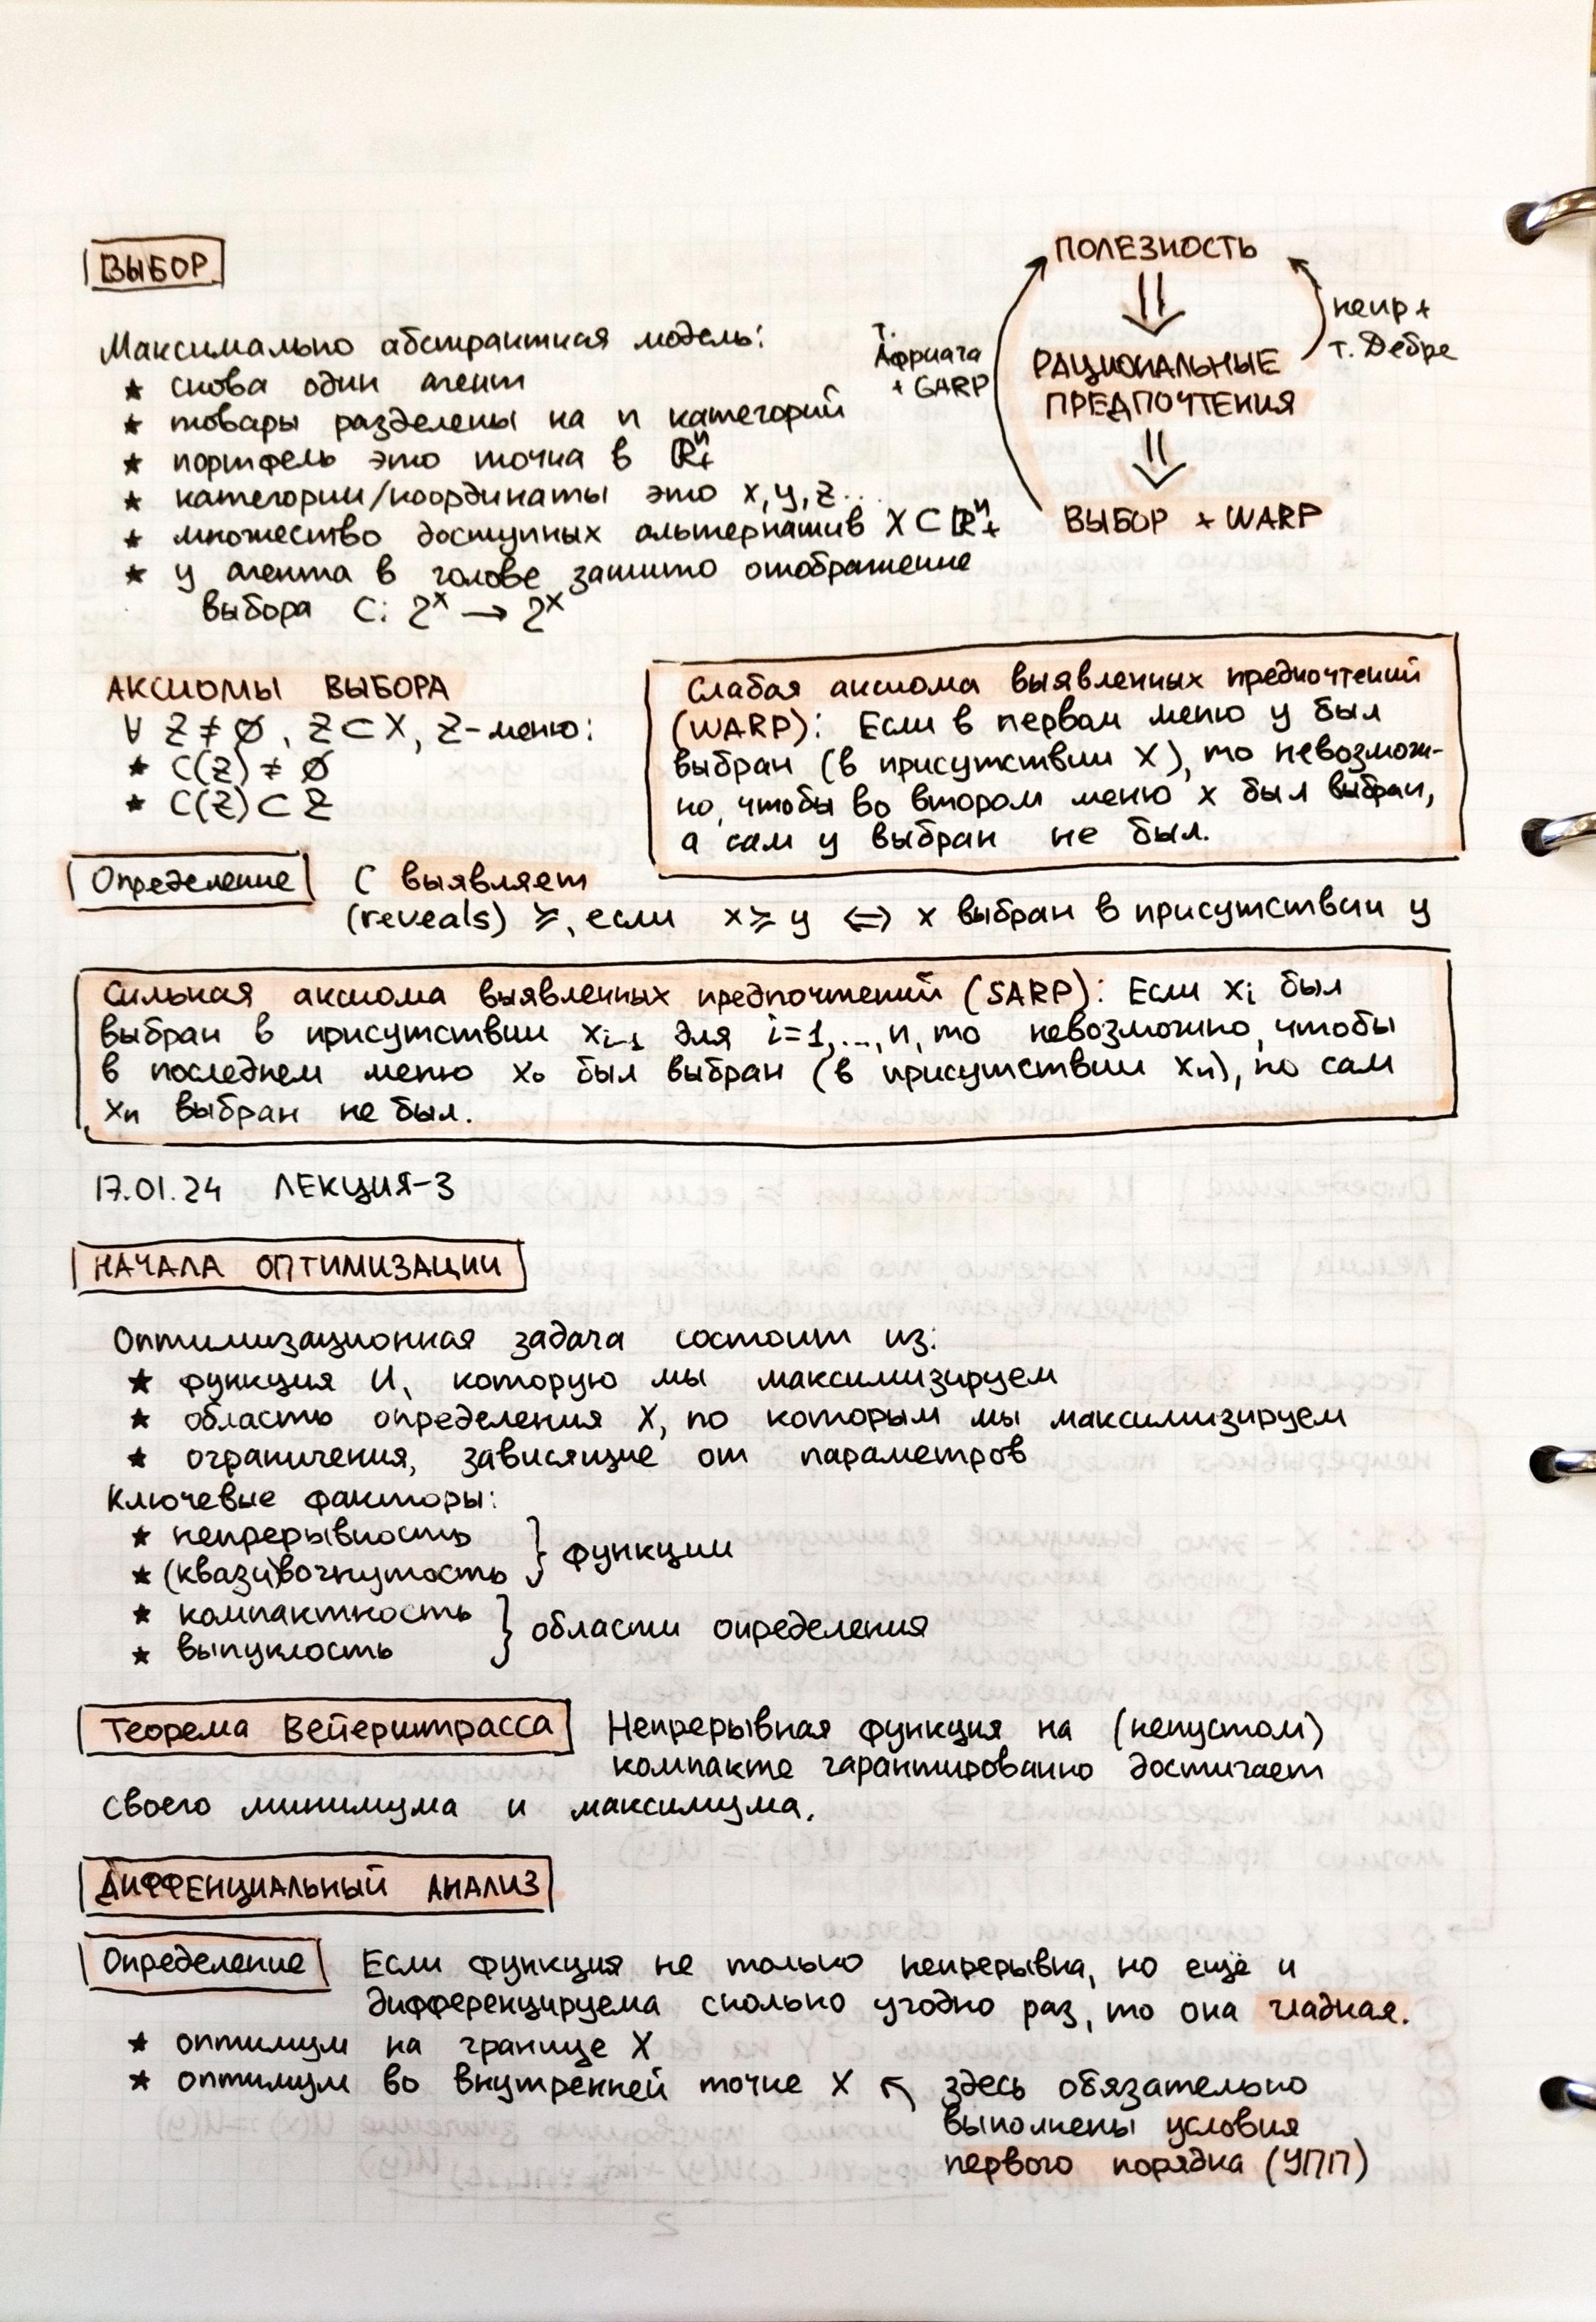 ВЫБОР
Максимально абстрактная модель:
★ снова один агент
★ товары разделены на n категорий
★ портфель это точка в ℝⁿ₊
★ категории/координаты это x, y, z...
★ множество доступных альтернатив X ⊂ ℝⁿ₊
★ у агента в голове зашито отображение
выбора C: 2ˣ → 2ˣ
ПОЛЕЗНОСТЬ
⇓
РАЦИОНАЛЬНЫЕ
ПРЕДПОЧТЕНИЯ
⇓
ВЫБОР + WARP
т.
Африата
+ GARP
непр +
т. Дебре
АКСИОМЫ ВЫБОРА
∀ Z ≠ ∅, Z ⊂ X, Z-меню:
★ C(Z) ≠ ∅
★ C(Z) ⊂ Z
Слабая аксиома выявленных предпочтений
(WARP): Если в первом меню y был
выбран (в присутствии x), то невозмож-
но, чтобы во втором меню x был выбран,
а сам y выбран не был.
Определение C выявляет
(reveals) ≽, если x ≽ y ⟺ x выбран в присутствии y
Сильная аксиома выявленных предпочтений (SARP): Если xᵢ был
выбран в присутствии xᵢ₋₁ для i=1,...,n, то невозможно, чтобы
в последнем меню x₀ был выбран (в присутствии xₙ), но сам
xₙ выбран не был.
17.01.24 ЛЕКЦИЯ-3
НАЧАЛА ОПТИМИЗАЦИИ
Оптимизационная задача состоит из:
★ функция U, которую мы максимизируем
★ область определения X, по которым мы максимизируем
★ ограничения, зависящие от параметров
Ключевые факторы:
★ непрерывность
★ (квази)вогнутость } функции
★ компактность
★ выпуклость } области определения
Теорема Вейерштрасса Непрерывная функция на (непустом)
компакте гарантированно достигает
своего минимума и максимума.
ДИФФЕНЦИАЛЬНЫЙ АНАЛИЗ
Определение Если функция не только непрерывна, но ещё и
дифференцируема сколько угодно раз, то она гладкая.
★ оптимум на границе X
★ оптимум во внутренней точке X ↖ здесь обязательно
выполнены условия
первого порядка (УПП)